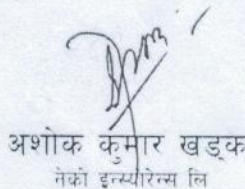 अशोक कुमार खड्क
नेको इन्स्योरेन्स लि